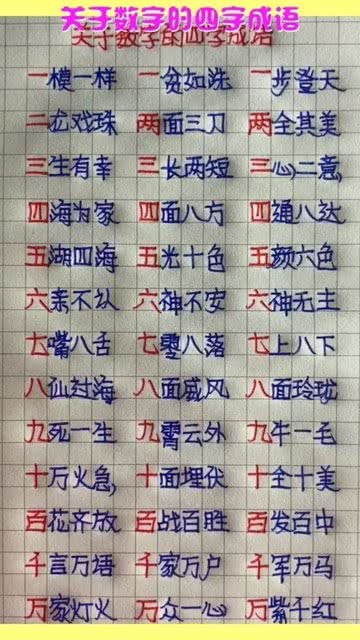 关于数字的四字成语
关于数字的四字成语
一模一样 一贫如洗 一步登天
二龙戏珠 两面三刀 两全其美
三生有幸 三长两短 三心二意
四海为家 四面八方 四通八达
五湖四海 五光十色 五颜六色
六亲不认 六神不安 六神无主
七嘴八舌 七零八落 七上八下
八仙过海 八面威风 八面玲珑
九死一生 九霄云外 九牛一毛
十万火急, 十面埋伏 十全十美
百花齐放 百战百胜 百发百中
千言万语 千家万户 千军万马
万家灯火 万众一心 万紫千红